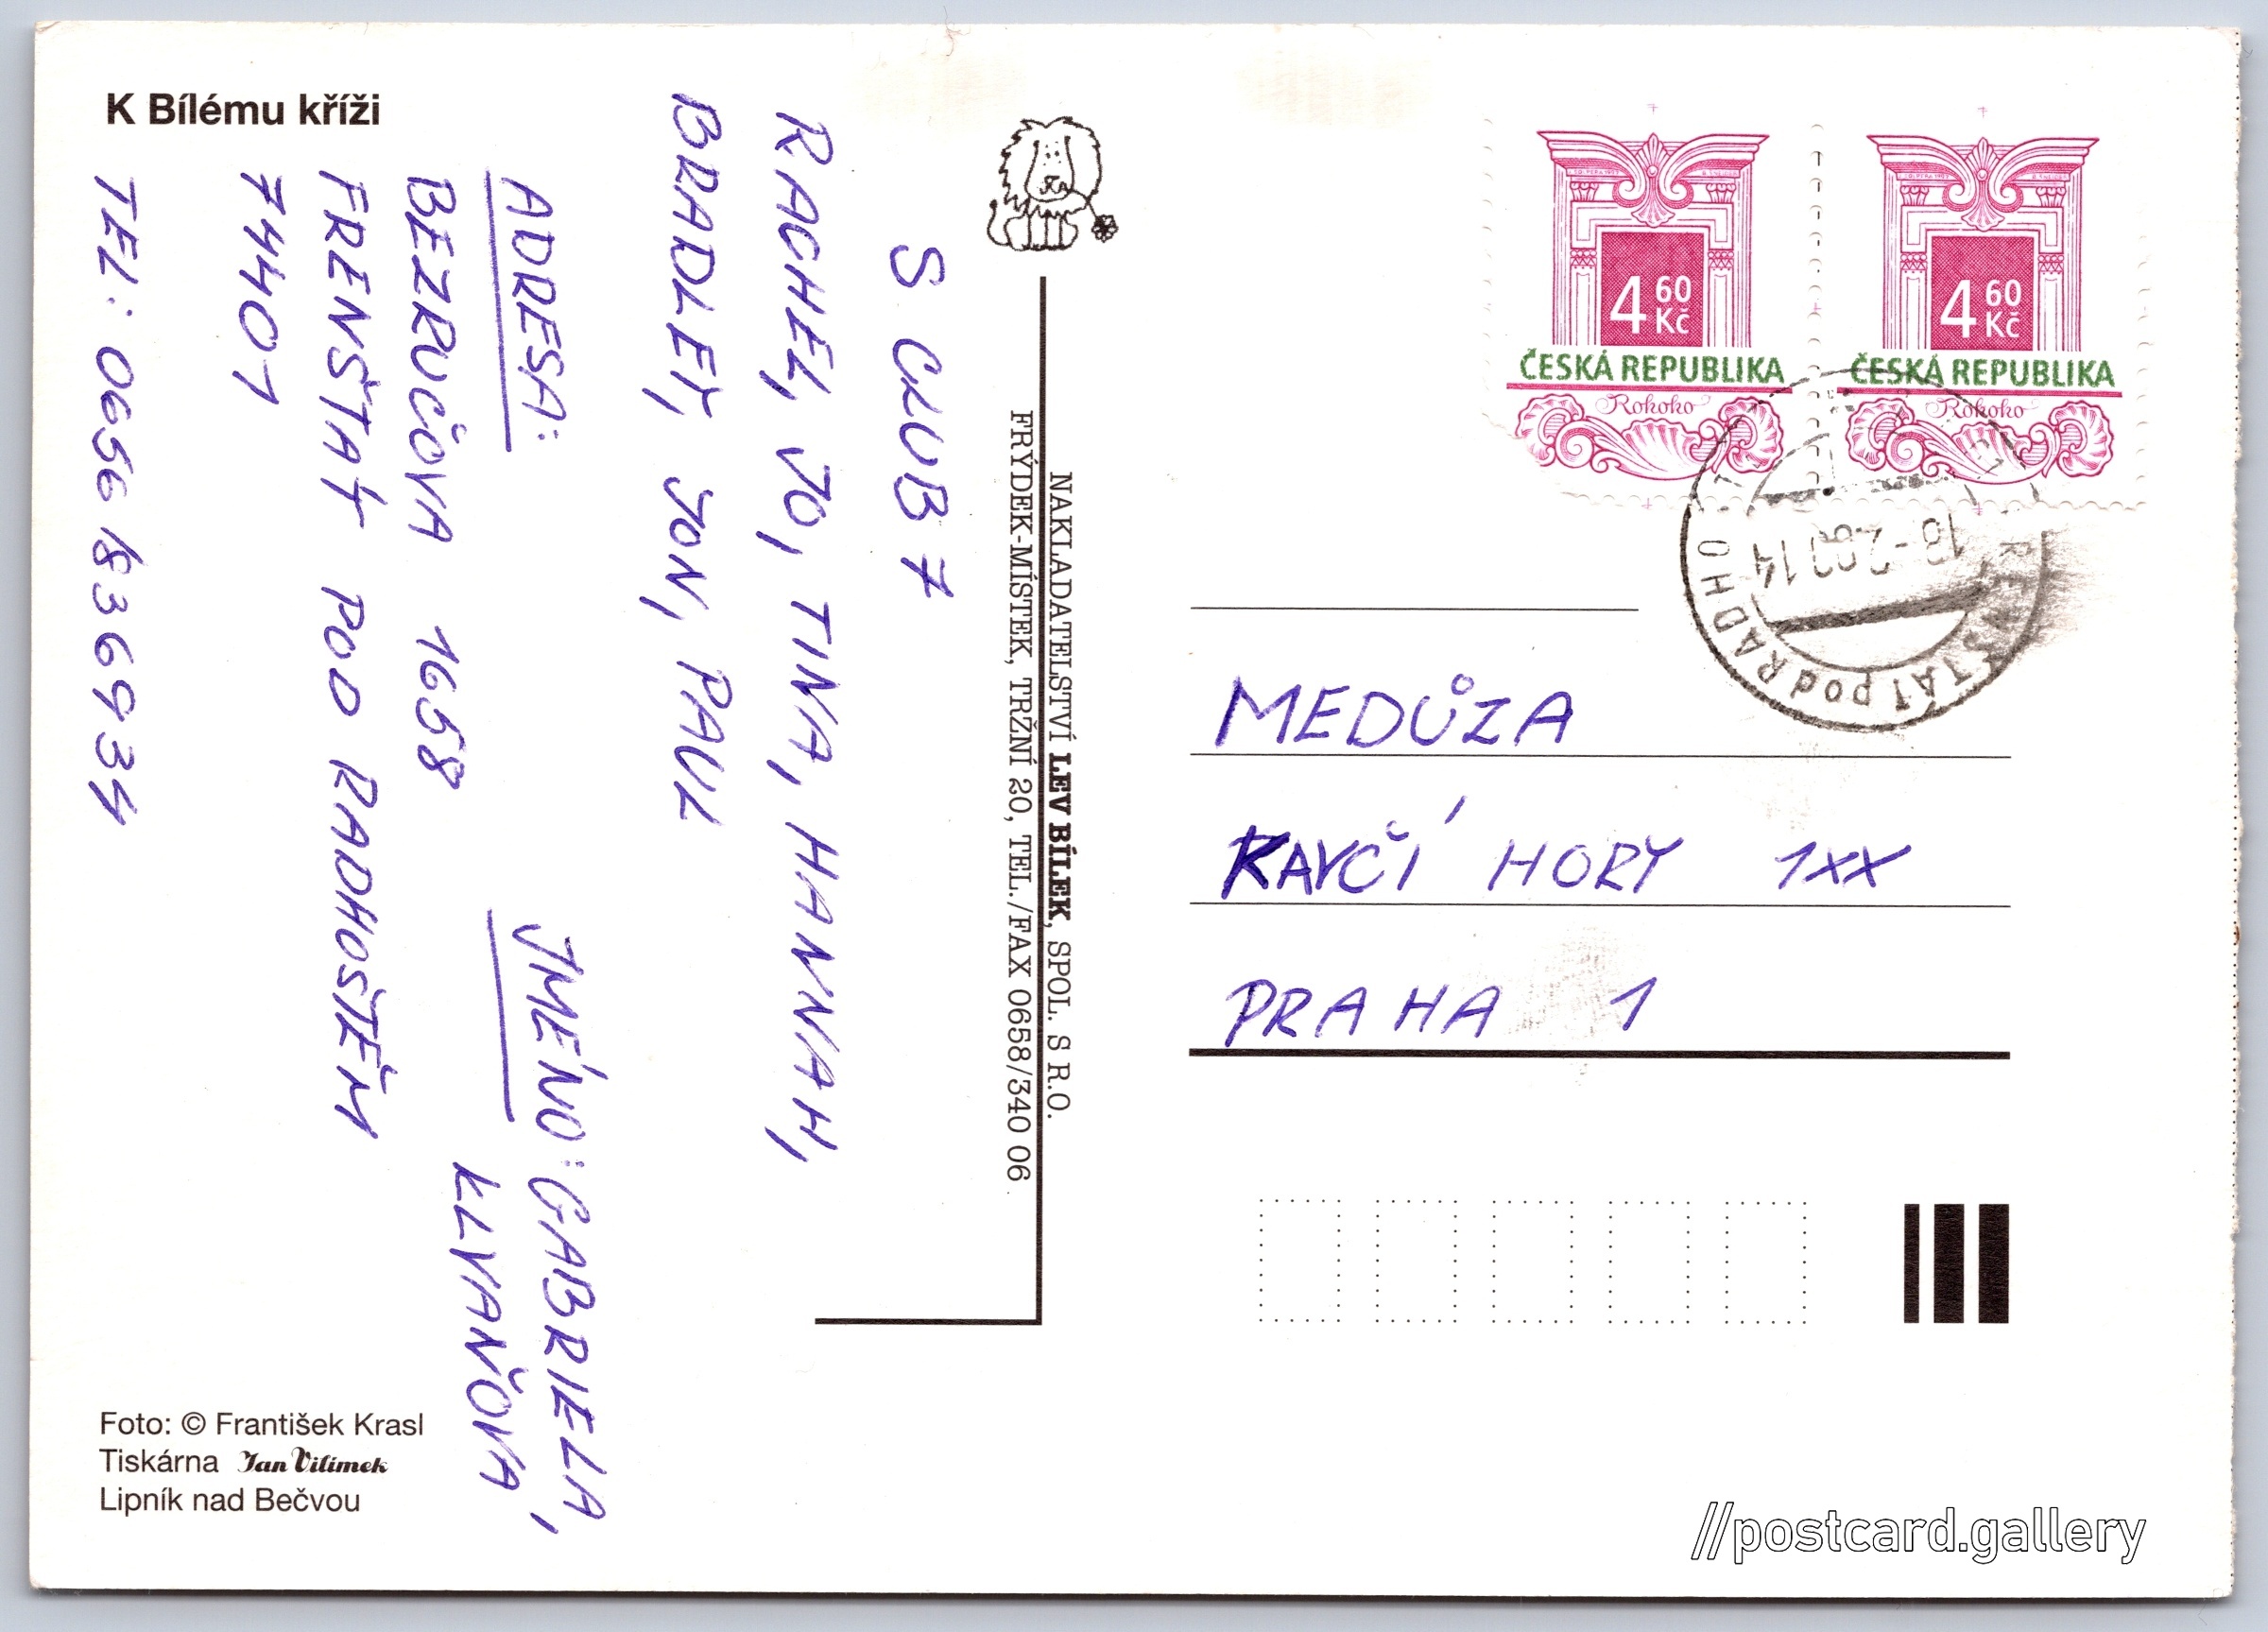 K Bílému kříži
S CLUB 7
RACHEL, JO, TINA, HANNAH,
BRADLEY, JON, PAUL
ADRESA:
BEZRUČOVA 1658
FRENŠTÁT POD RADHOŠTĚM
74401
TEL: 0656/836934
JMÉNO: GABRIELA,
KLVAŇOVA
Foto: © František Krasl
Tiskárna Jan Vilímek
Lipník nad Bečvou
NAKLADATELSTVÍ LEV BÍLEK, SPOL. S R.O.
FRÝDEK-MÍSTEK, TRŽNÍ 20, TEL./FAX 0658/340 06
4 60 Kč
ČESKÁ REPUBLIKA
Rokoko
4 60 Kč
ČESKÁ REPUBLIKA
Rokoko
pod RADHO
MEDŮZA
KAVČÍ HORY 1XX
PRAHA 1
//postcard.gallery